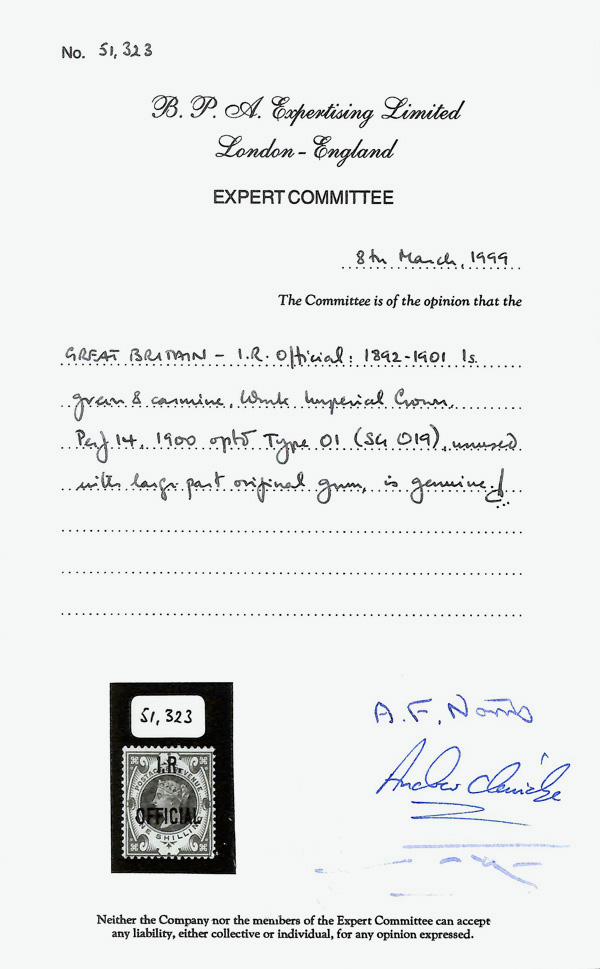 No. 51,323
B. P. A. Expertising Limited
London - England
EXPERT COMMITTEE
8th March, 1999
The Committee is of the opinion that the
GREAT BRITAIN - I.R. Official: 1892-1901 1s.
green & carmine, Wmk Imperial Crown,
Perf 14, 1900 optd Type O1 (SG O19), unused
with large part original gum, is genuine.
51,323
I.R.
POSTAGE & REVENUE
OFFICIAL
ONE SHILLING
A. F. Norris
Andrew
Neither the Company nor the members of the Expert Committee can accept
any liability, either collective or individual, for any opinion expressed.